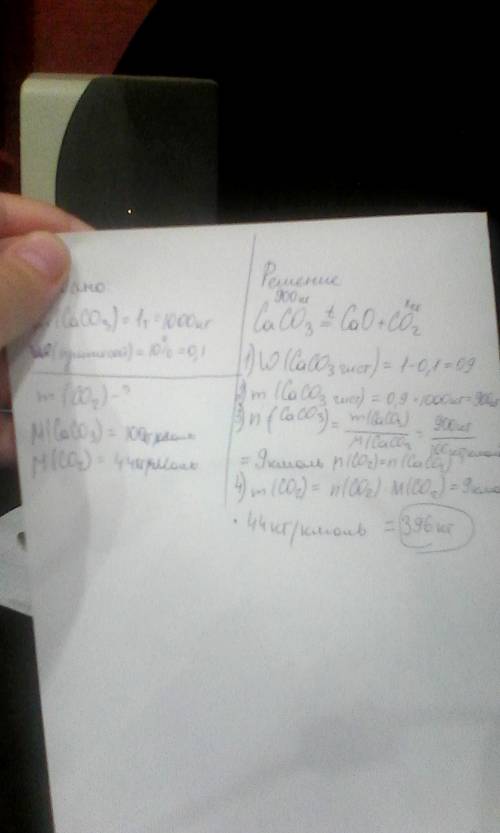 ано
(CaCO₃) = 1т = 1000кг
(примесей) = 10% = 0,1
m (CO₂) - ?
M(CaCO₃) = 100кг/кмоль
M(CO₂) = 44кг/кмоль
Решение
900кг
CaCO₃ t= CaO + CO₂
1) W (CaCO₃ чист) = 1 - 0,1 = 0,9
2) m (CaCO₃ чист) = 0,9 · 1000кг = 900кг
3) n (CaCO₃) = m(CaCO₃) / M(CaCO₃ = 900кг /
= 9кмоль n(CO₂) = n(CaCO₃)
4) m(CO₂) = n(CO₂) · M(CO₂) = 9кмо
· 44кг/кмоль = 396кг